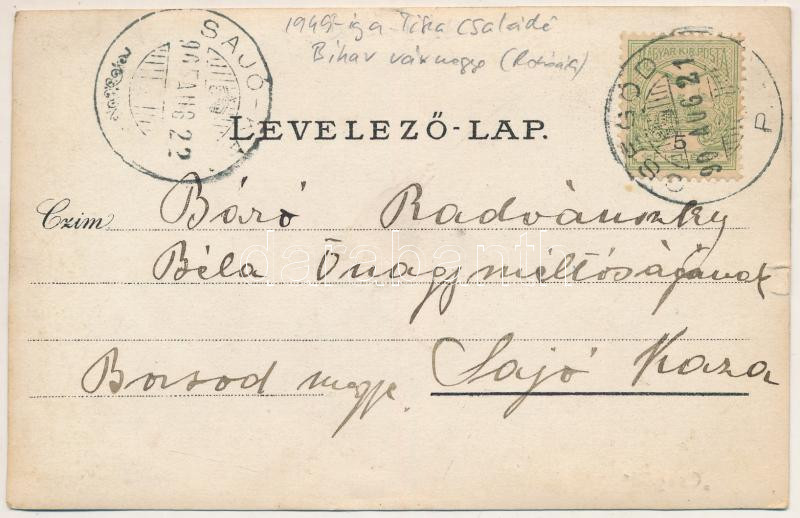 1945-ig a Tisza családé
Bihar vármegye
MAGYAR KIR. POSTA
SAJÓ-
AUG 22
CSEGŐD
AUG 21
P
LEVELEZŐ-LAP.
Czim Báró Radvánszky
Béla Őnagyméltóságának
Borsod megye. Sajó Kaza
darabanth